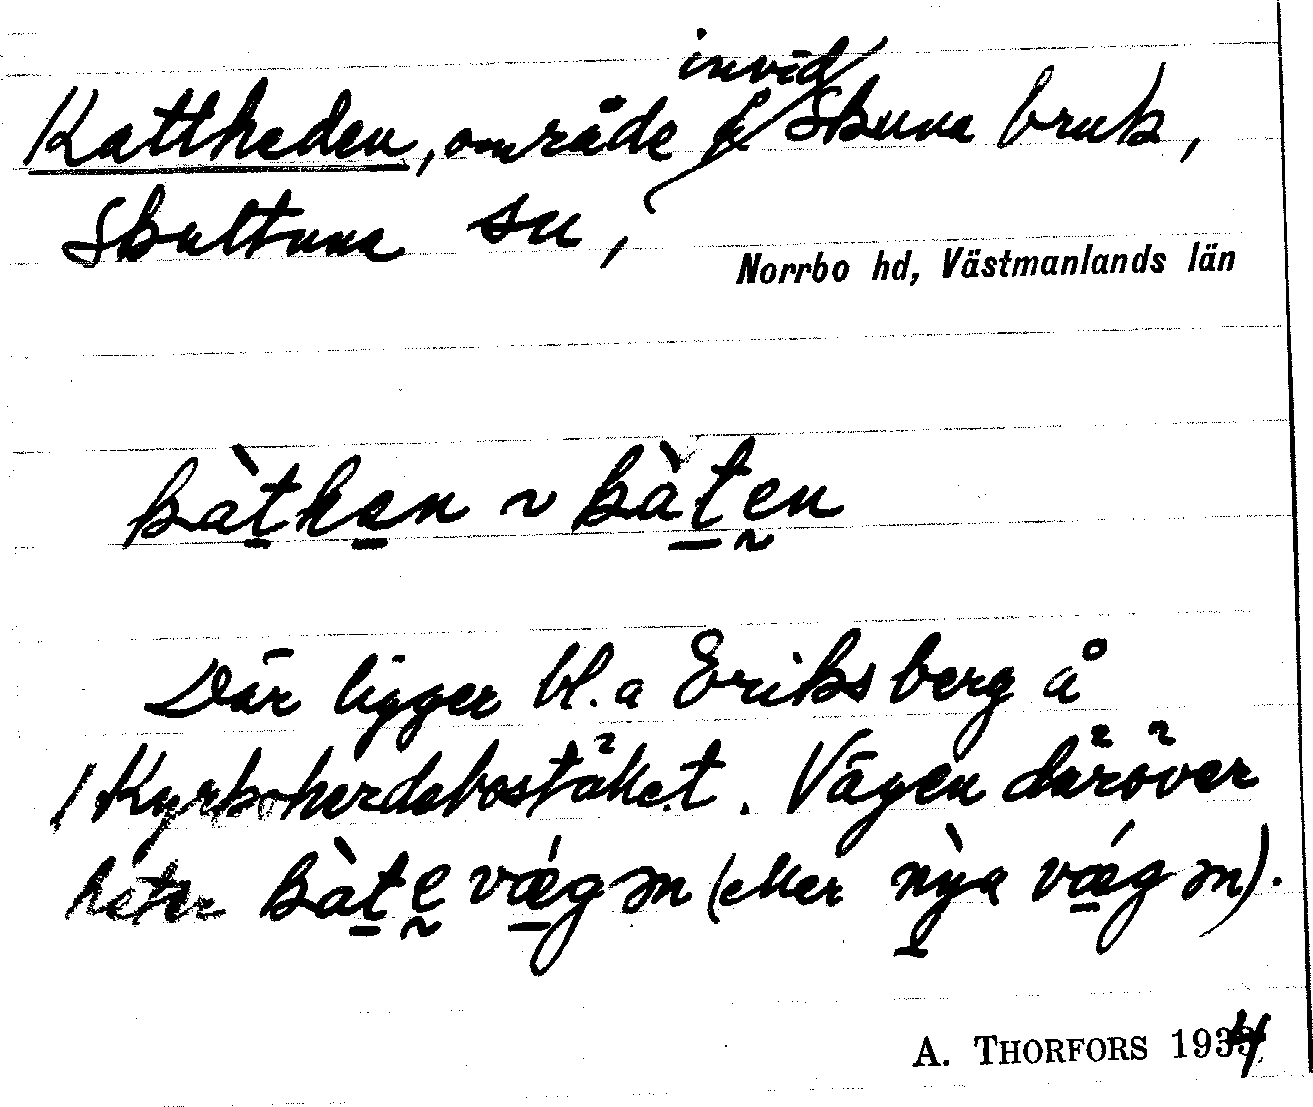 Kattheden, område invid Skuna bruk,
Skultuna sn,
Norrbo hd, Västmanlands län
kàthan ~ kàten
Där ligger bl.a Eriksberg å
Kyrkoherdebostället. Vägen däröver
heter kàte vǽgm (eller nỳa vǽgm).
A. THORFORS 1934